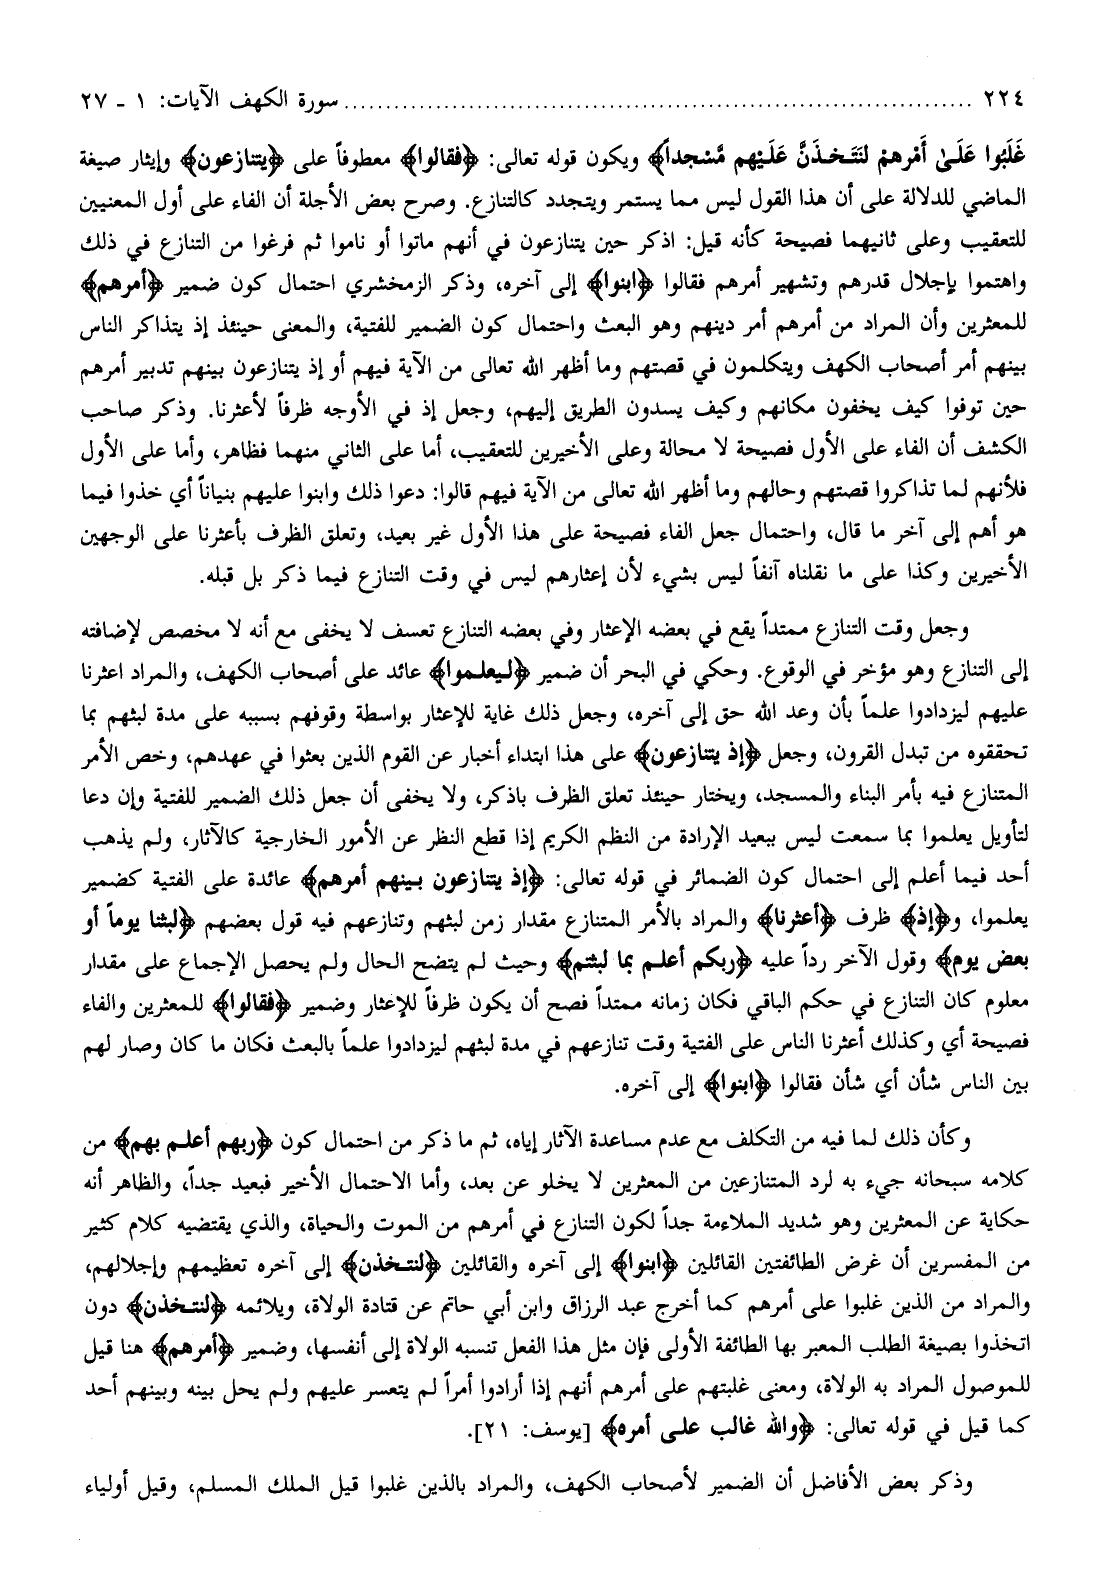 ٢٢٤ ........................................ سورة الكهف الآيات: ١ - ٢٧
غَلَبُوا عَلَىٰ أَمْرِهِمْ لَنَتَّخِذَنَّ عَلَيْهِم مَّسْجِداً﴾ ويكون قوله تعالى: ﴿فقالوا﴾ معطوفاً على ﴿يتنازعون﴾ وإيثار صيغة
الماضي للدلالة على أن هذا القول ليس مما يستمر ويتجدد كالتنازع. وصرح بعض الأجلة أن الفاء على أول المعنيين
للتعقيب وعلى ثانيهما فصيحة كأنه قيل: اذكر حين يتنازعون في أنهم ماتوا أو ناموا ثم فرغوا من التنازع في ذلك
واهتموا بإجلال قدرهم وتشهير أمرهم فقالوا ﴿ابنوا﴾ إلى آخره، وذكر الزمخشري احتمال كون ضمير ﴿أمرهم﴾
للمعثرين وأن المراد من أمرهم أمر دينهم وهو البعث واحتمال كون الضمير للفتية، والمعنى حينئذ إذ يتذاكر الناس
بينهم أمر أصحاب الكهف ويتكلمون في قصتهم وما أظهر الله تعالى من الآية فيهم أو إذ يتنازعون بينهم تدبير أمرهم
حين توفوا كيف يخفون مكانهم وكيف يسدون الطريق إليهم، وجعل إذ في الأوجه ظرفاً لأعثرنا. وذكر صاحب
الكشف أن الفاء على الأول فصيحة لا محالة وعلى الأخيرين للتعقيب، أما على الثاني منهما فظاهر، وأما على الأول
فلأنهم لما تذاكروا قصتهم وحالهم وما أظهر الله تعالى من الآية فيهم قالوا: دعوا ذلك وابنوا عليهم بنياناً أي خذوا فيما
هو أهم إلى آخر ما قال، واحتمال جعل الفاء فصيحة على هذا الأول غير بعيد، وتعلق الظرف بأعثرنا على الوجهين
الأخيرين وكذا على ما نقلناه آنفاً ليس بشيء لأن إعثارهم ليس في وقت التنازع فيما ذكر بل قبله.
وجعل وقت التنازع ممتداً يقع في بعضه الإعثار وفي بعضه التنازع تعسف لا يخفى مع أنه لا مخصص لإضافته
إلى التنازع وهو مؤخر في الوقوع. وحكي في البحر أن ضمير ﴿ليعلموا﴾ عائد على أصحاب الكهف، والمراد اعثرنا
عليهم ليزدادوا علماً بأن وعد الله حق إلى آخره، وجعل ذلك غاية للإعثار بواسطة وقوفهم بسببه على مدة لبثهم بما
تحققوه من تبدل القرون، وجعل ﴿إذ يتنازعون﴾ على هذا ابتداء أخبار عن القوم الذين بعثوا في عهدهم، وخص الأمر
المتنازع فيه بأمر البناء والمسجد، ويختار حينئذ تعلق الظرف باذكر، ولا يخفى أن جعل ذلك الضمير للفتية وإن دعا
لتأويل يعلموا بما سمعت ليس ببعيد الإرادة من النظم الكريم إذا قطع النظر عن الأمور الخارجية كالآثار، ولم يذهب
أحد فيما أعلم إلى احتمال كون الضمائر في قوله تعالى: ﴿إذ يتنازعون بينهم أمرهم﴾ عائدة على الفتية كضمير
يعلموا، و﴿إذ﴾ ظرف ﴿أعثرنا﴾ والمراد بالأمر المتنازع مقدار زمن لبثهم وتنازعهم فيه قول بعضهم ﴿لبثنا يوماً أو
بعض يوم﴾ وقول الآخر رداً عليه ﴿ربكم أعلم بما لبثتم﴾ وحيث لم يتضح الحال ولم يحصل الإجماع على مقدار
معلوم كان التنازع في حكم الباقي فكان زمانه ممتداً فصح أن يكون ظرفاً للإعثار وضمير ﴿فقالوا﴾ للمعثرين والفاء
فصيحة أي وكذلك أعثرنا الناس على الفتية وقت تنازعهم في مدة لبثهم ليزدادوا علماً بالبعث فكان ما كان وصار لهم
بين الناس شأن أي شأن فقالوا ﴿ابنوا﴾ إلى آخره.
وكأن ذلك لما فيه من التكلف مع عدم مساعدة الآثار إياه، ثم ما ذكر من احتمال كون ﴿ربهم أعلم بهم﴾ من
كلامه سبحانه جيء به لرد المتنازعين من المعثرين لا يخلو عن بعد، وأما الاحتمال الأخير فبعيد جداً، والظاهر أنه
حكاية عن المعثرين وهو شديد الملاءمة جداً لكون التنازع في أمرهم من الموت والحياة، والذي يقتضيه كلام كثير
من المفسرين أن غرض الطائفتين القائلين ﴿ابنوا﴾ إلى آخره والقائلين ﴿لنتخذن﴾ إلى آخره تعظيمهم وإجلالهم،
والمراد من الذين غلبوا على أمرهم كما أخرج عبد الرزاق وابن أبي حاتم عن قتادة الولاة، ويلائمه ﴿لنتخذن﴾ دون
اتخذوا بصيغة الطلب المعبر بها الطائفة الأولى فإن مثل هذا الفعل تنسبه الولاة إلى أنفسها، وضمير ﴿أمرهم﴾ هنا قيل
للموصول المراد به الولاة، ومعنى غلبتهم على أمرهم أنهم إذا أرادوا أمراً لم يتعسر عليهم ولم يحل بينه وبينهم أحد
كما قيل في قوله تعالى: ﴿والله غالب على أمره﴾ [يوسف: ٢١].
وذكر بعض الأفاضل أن الضمير لأصحاب الكهف، والمراد بالذين غلبوا قيل الملك المسلم، وقيل أولياء